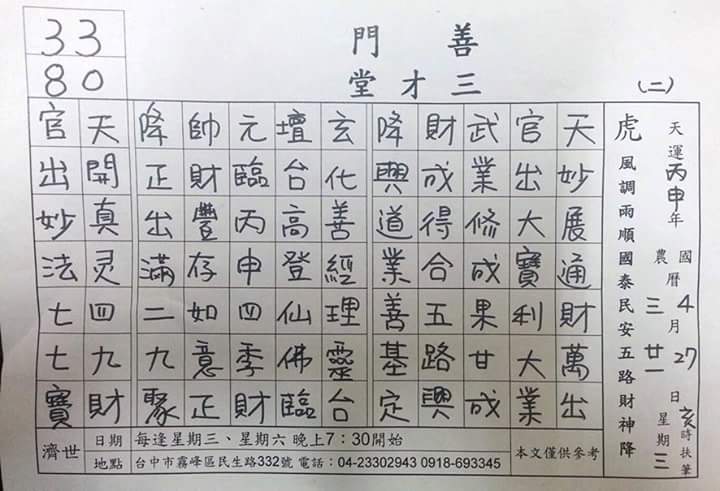 善門
三才堂
(二)
天運丙申年 國曆4月27日 農三廿一 星期三 亥時扶筆
虎 風調雨順國泰民安五路財神降
天妙展通財萬出
官出大寶利大業
武業修成果廿成
財成得合五路興
降興道業善基定
玄化善經理靈台
壇台高登仙佛臨
元臨丙申四季財
帥財豐存如意正
降正出滿二九聚
天開真灵四九財
官出妙法七七寶
33
80
濟世
日期 每逢星期三、星期六 晚上7：30開始
地點 台中市霧峰區民生路332號 電話：04-23302943 0918-693345
本文僅供參考